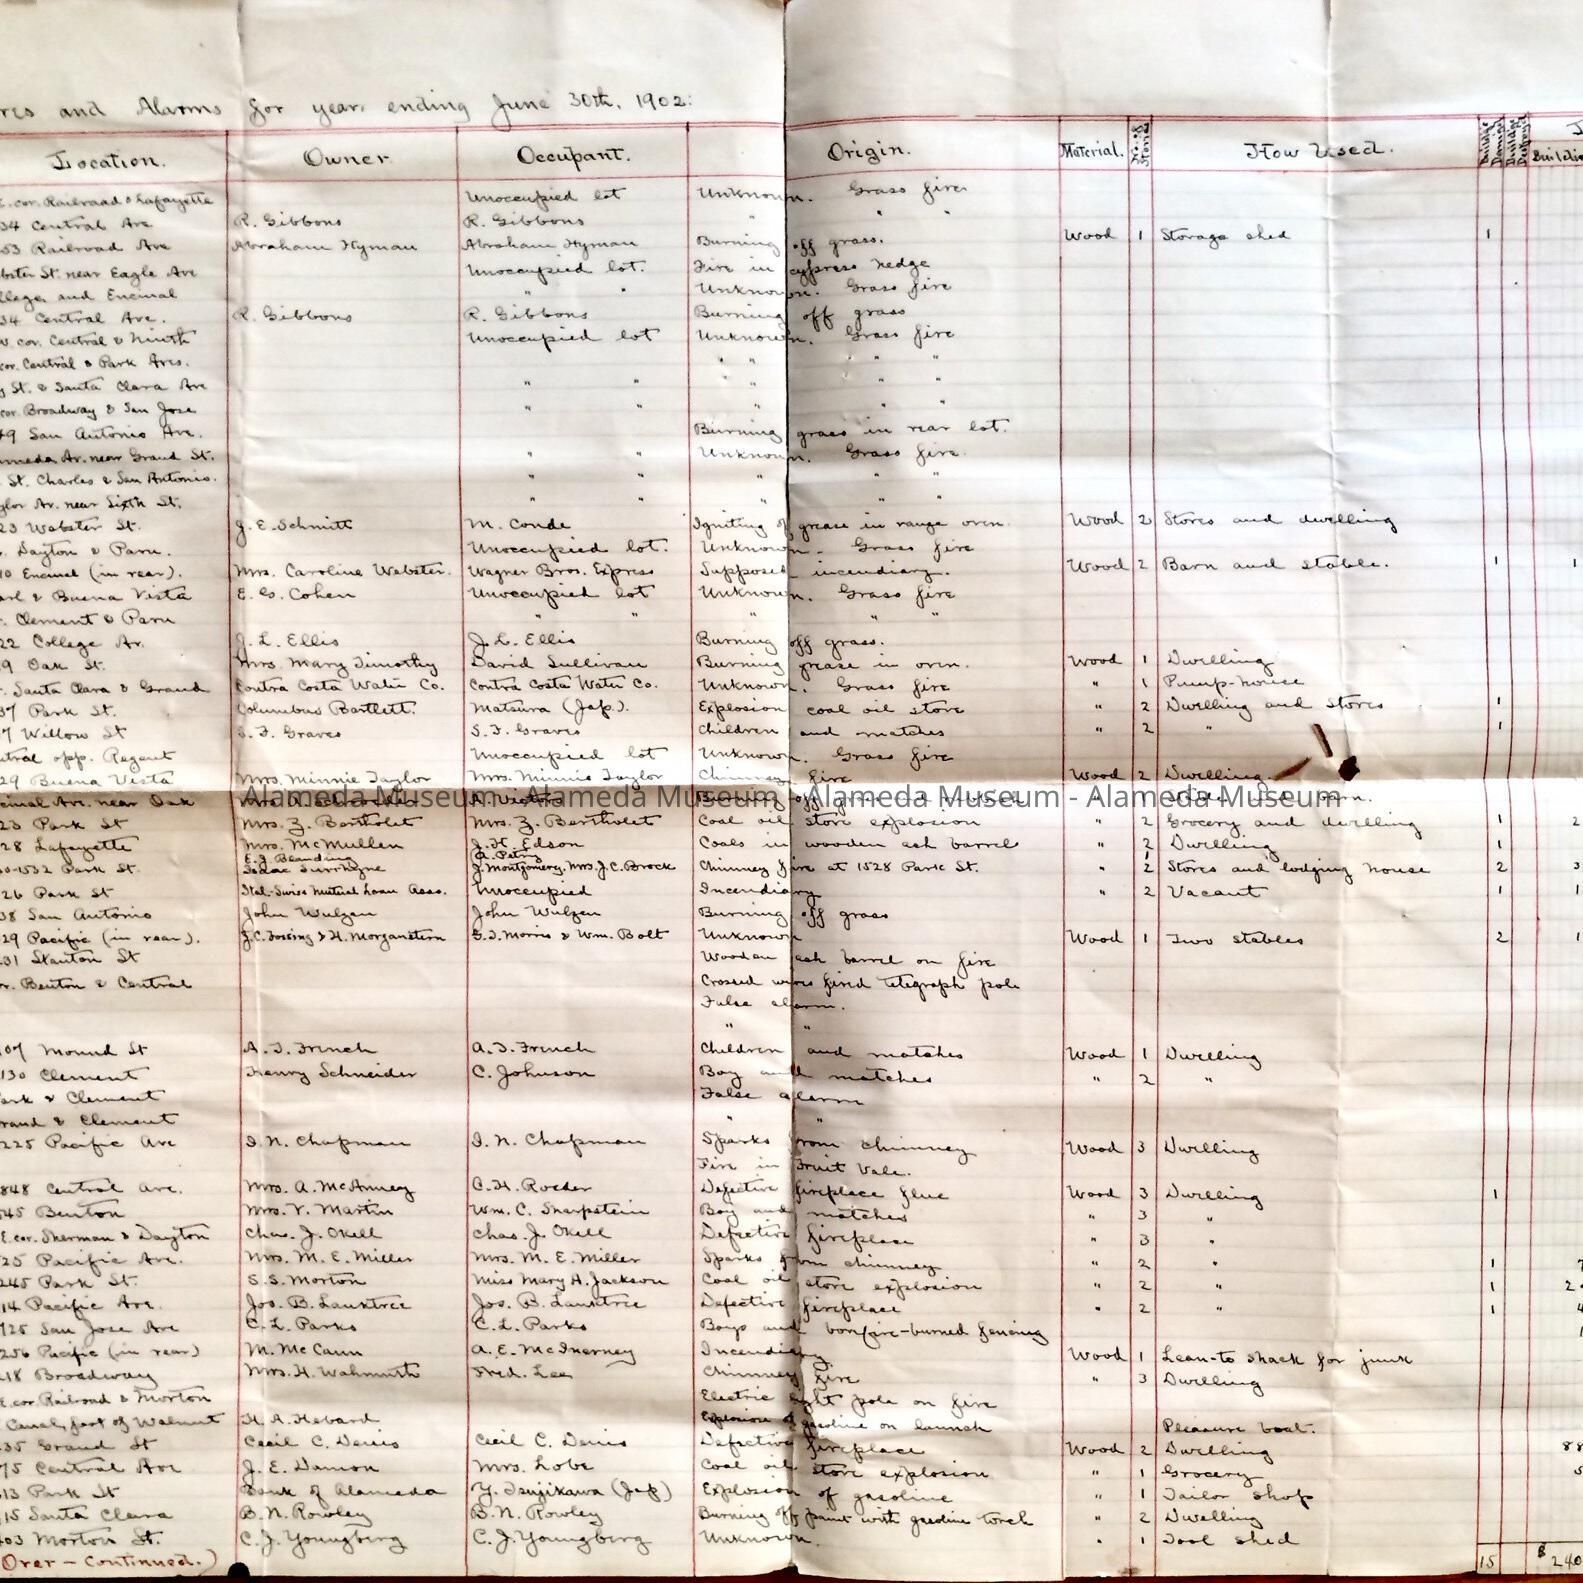 res and Alarms for year ending June 30th, 1902:
Location. Owner Occupant. Origin. Material. No. of Stories How Used. Buildings Damaged Buildings Destroyed
E. cor. Railroad & Lafayette Unoccupied lot Unknown. Grass fire
34 Central Ave R. Gibbons R. Gibbons " " "
53 Railroad Ave Abraham Hyman Abraham Hyman Burning off grass. Wood 1 Storage shed 1
bster St. near Eagle Ave Unoccupied lot. Fire in cypress hedge
llege and Encinal " " Unknown. Grass fire
34 Central Ave. R. Gibbons R. Gibbons Burning off grass
w cor. Central & Ninth Unoccupied lot Unknown. Grass fire
cor. Central & Park Aves. " " " "
y St. & Santa Clara Ave " " " " "
cor. Broadway & San Jose " " " " "
49 San Antonio Ave. Burning grass in rear lot.
ameda Av. near Grand St. " " Unknown. Grass fire.
St. Charles & San Antonio. " " " " "
ylor Av. near Sixth St. " " " " "
23 Webster St. J. E. Schmitt M. Conde Igniting of grease in range oven. Wood 2 Stores and dwelling
. Dayton & Paru. Unoccupied lot. Unknown. Grass fire
10 Encinal (in rear). Mrs. Caroline Webster. Wagner Bros. Express Supposed incendiary. Wood 2 Barn and stable. 1 1
arl & Buena Vista E. G. Cohen Unoccupied lot Unknown. Grass fire
. Clement & Paru " " " "
22 College Av. J. L. Ellis J. L. Ellis Burning off grass.
9 Oak St. Mrs. Mary Timothy David Sullivan Burning grease in oven. Wood 1 Dwelling
. Santa Clara & Grand Contra Costa Water Co. Contra Costa Water Co. Unknown. Grass fire " 1 Pump-house
37 Park St. Columbus Bartlett. Matsura (Jap.). Explosion coal oil stove " 2 Dwelling and stores 1
7 Willow St S. F. Graves S. F. Graves Children and matches " 2 " 1
ntral opp. Regent Unoccupied lot Unknown. Grass fire
29 Buena Vista Mrs. Minnie Taylor Mrs. Minnie Taylor Chimney fire Wood 2 Dwelling.
Alameda Museum - Alameda Museum - Alameda Museum - Alameda Museum
cinal Ave. near Oak
23 Park St Mrs. Z. Bertholet Mrs. Z. Bertholet Coal oil stove explosion " 2 Grocery and dwelling 1 2
28 Lafayette Mrs. McMullen J. H. Edson Coals in wooden ash barrel " 2 Dwelling 1
0-1532 Park St. E. J. Blanding J. Montgomery, Mrs. J. C. Brock Chimney fire at 1528 Park St. " 2 Stores and lodging house 2 3
26 Park St Ital.-Swiss Mutual Loan Asso. Unoccupied Incendiary " 2 Vacant 1 1
38 San Antonio John Wulzen John Wulzen Burning off grass
29 Pacific (in rear). J. C. Fossing & H. Morganstern G. T. Morris & Wm. Bolt Unknown Wood 1 Two stables 2 1
31 Stanton St Wooden ash barrel on fire
or. Benton & Central Crossed wires fired telegraph pole
False alarm.
" "
07 Mound St A. T. French A. T. French Children and matches Wood 1 Dwelling
130 Clement Henry Schneider C. Johnson Boy and matches " 2 "
ark & Clement False alarm
rand & Clement " "
225 Pacific Ave I. N. Chapman I. N. Chapman Sparks from chimney Wood 3 Dwelling
Fire in Fruit Vale.
848 Central Ave. Mrs. A. McAnney C. H. Roeder Defective fireplace flue Wood 3 Dwelling 1
545 Benton Mrs. V. Martin Wm. C. Sharpstein Boy and matches " 3 "
E. cor. Sherman & Dayton Chas. J. Okell Chas. J. Okell Defective fireplace " 3 "
25 Pacific Ave. Mrs. M. E. Miller Mrs. M. E. Miller Sparks from chimney " 2 " 1
245 Park St. S. S. Morton Miss Mary H. Jackson Coal oil stove explosion " 2 " 1 2
14 Pacific Ave. Jos. B. Lanktree Jos. B. Lanktree Defective fireplace " 2 " 1 4
725 San Jose Ave C. L. Parks C. L. Parks Boys and bonfire-burned fencing
256 Pacific (in rear) M. McCann A. E. McInerney Incendiary. Wood 1 Lean-to shack for junk
218 Broadway Mrs. H. Wahmuth Fred. Lee Chimney fire " 3 Dwelling
E. cor. Railroad & Morton Electric light pole on fire
Canal, foot of Walnut H. A. Hebard Explosion of gasoline on launch Pleasure boat.
35 Grand St Cecil C. Denis Cecil C. Denis Defective fireplace Wood 2 Dwelling 88
75 Central Ave J. E. Damon Mrs. Lobe Coal oil stove explosion " 1 Grocery 5
513 Park St Bank of Alameda Y. Tsujikawa (Jap) Explosion of gasoline " 1 Tailor shop
15 Santa Clara B. N. Rowley B. N. Rowley Burning off paint with gasoline torch " 2 Dwelling
403 Morton St. C. J. Youngberg C. J. Youngberg Unknown. " 1 Tool shed
Over - Continued.) 15 $ 240